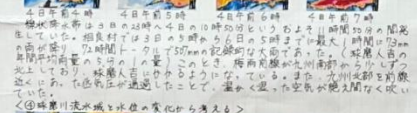 4日午前4時 4日午前5時 4日午前6時 4日午前7時
線状降水帯は3日の23時～4日の10時50分というおよそ11時間50分の間発
生していた。相良村では3日の5時から4日の5時までに最大1時間に73mm
の雨が降り、72時間トータルで507mmの記録的な大雨であった。(球磨人吉の
年間平均雨量の5分の1の量!)このとき、梅雨前線が九州南部から少しずつ
北上しており、球磨人吉にかかるようになっている。また、九州北部を前線
近くにあった低気圧が通過したことで、温かく湿った空気が絶え間なく吹い
ていた。
<④球磨川流水域と水位の変化から考える>